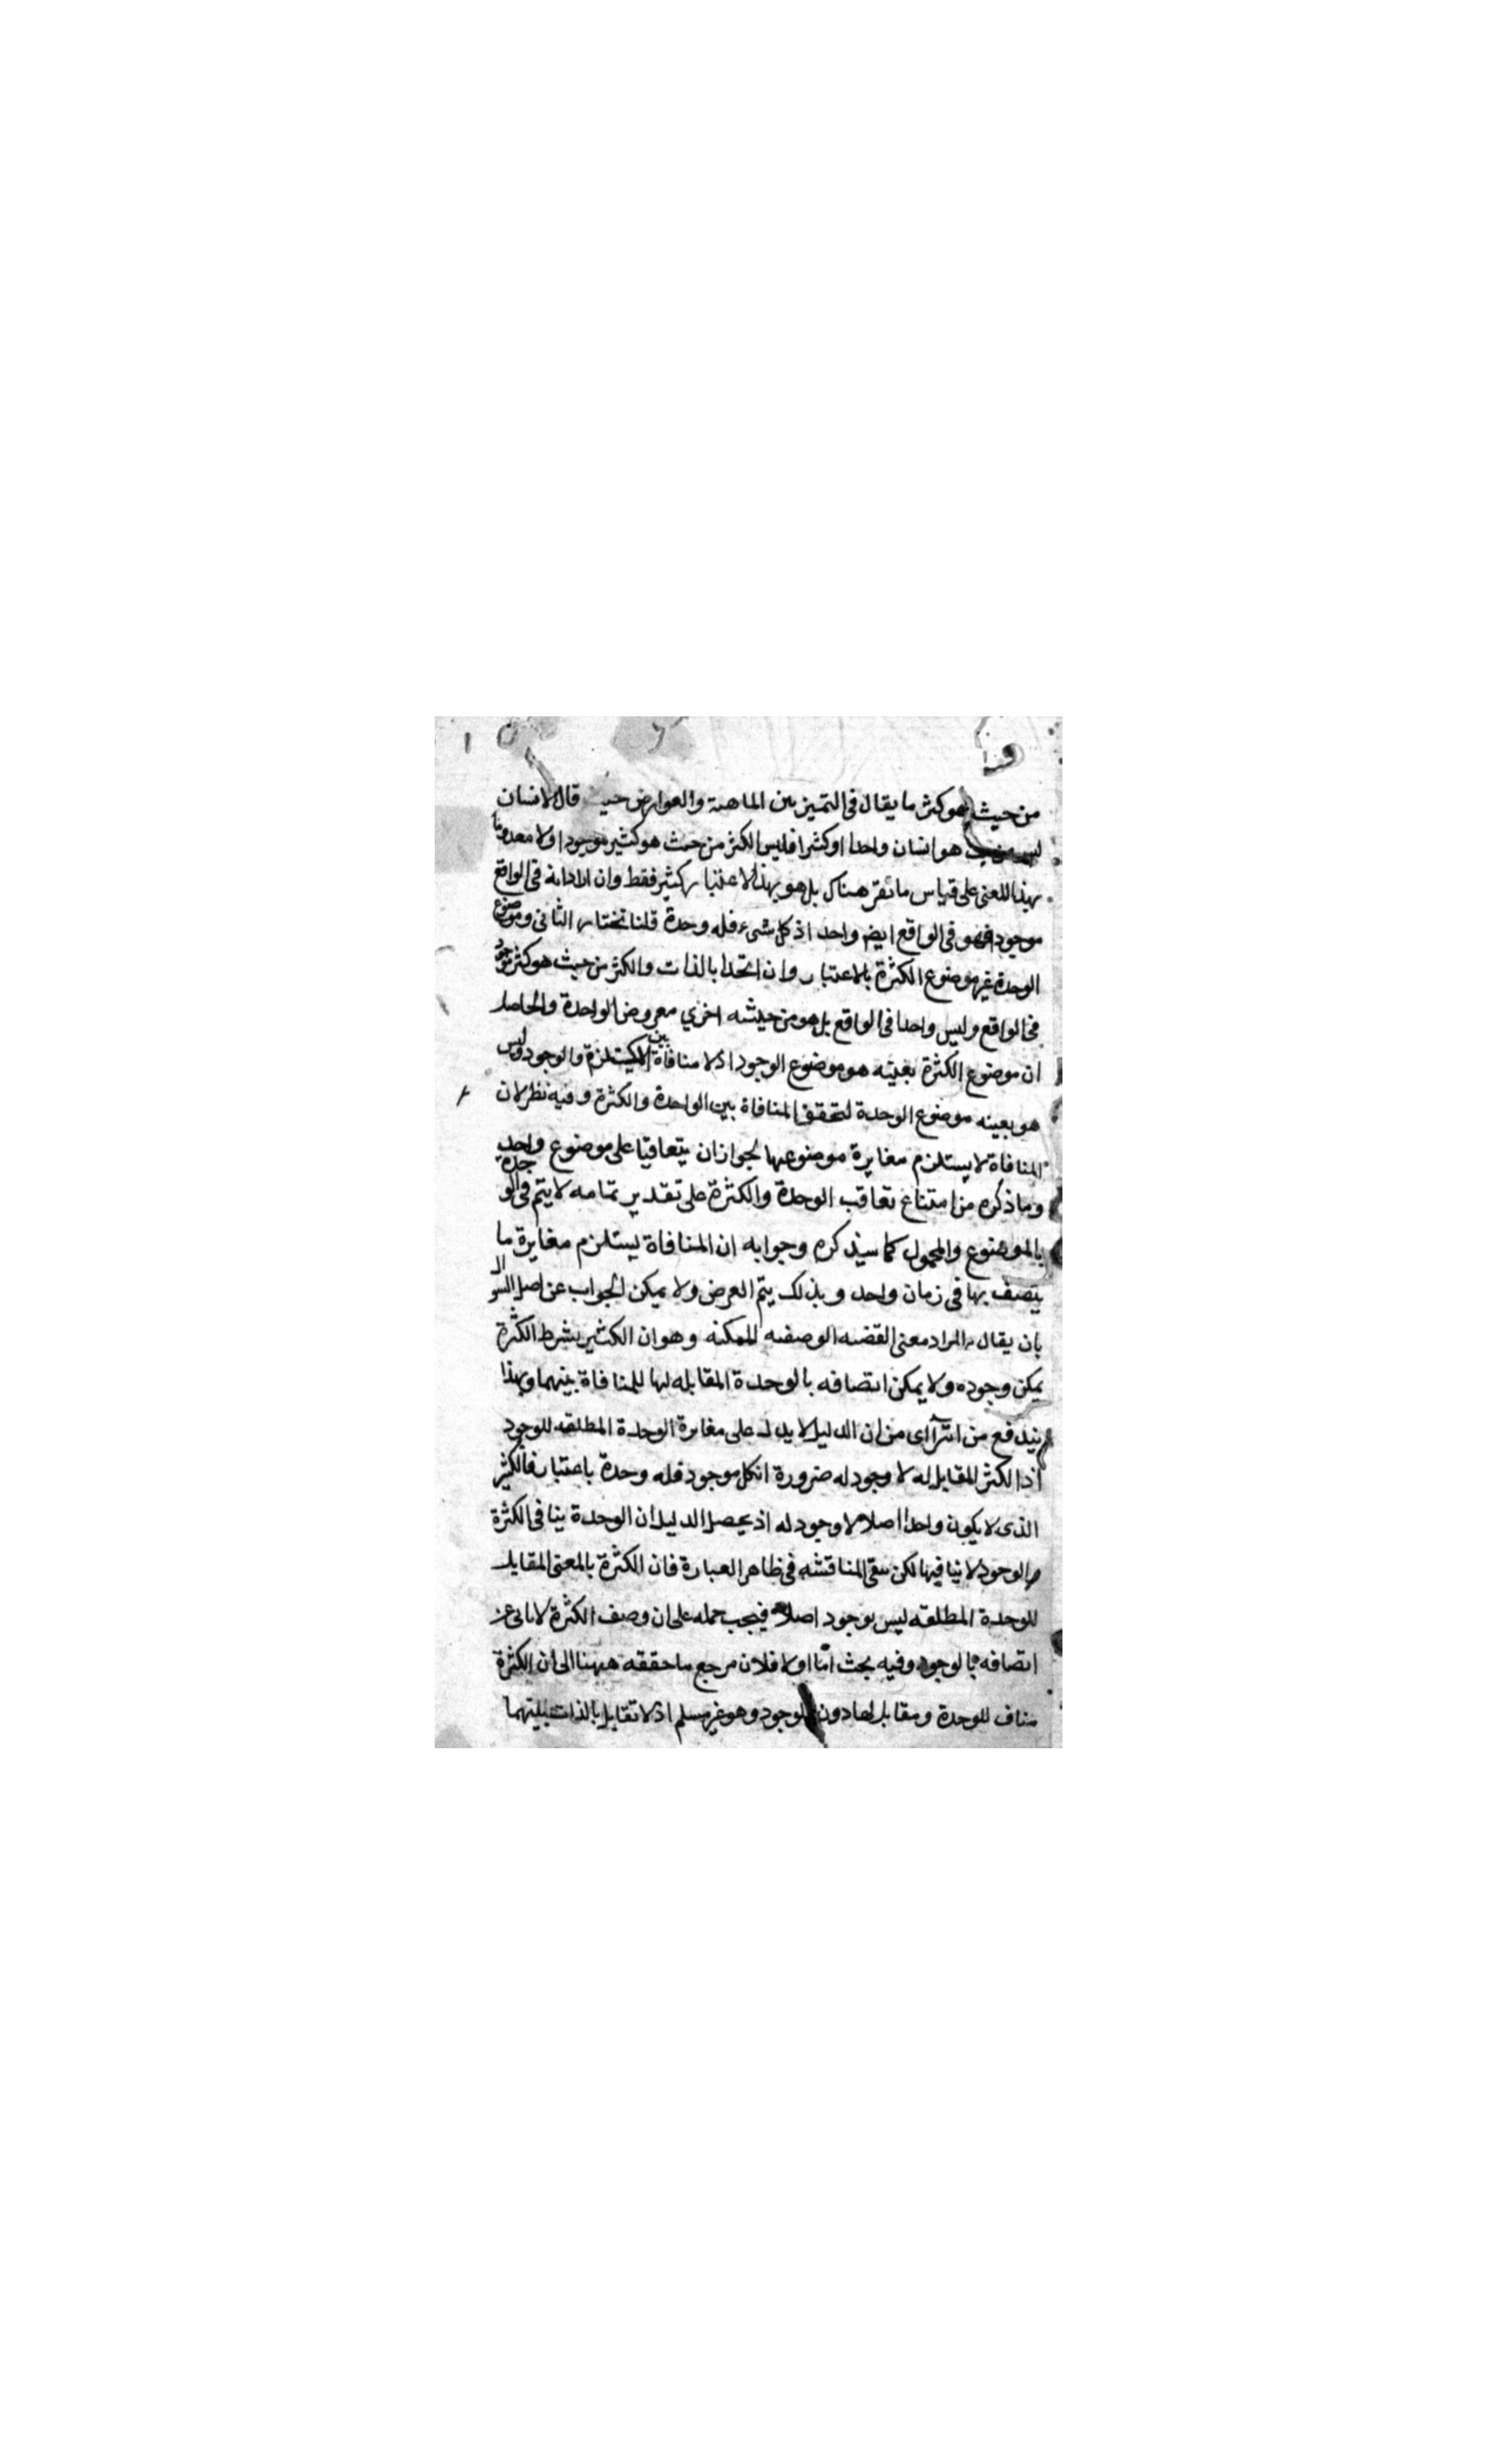 من حيث هو كثير ما يقال في التميز بين الماهية والعوارض حيث قال الانسان
ليس من حيث هو انسان واحدا او كثيرا فليس الكثير من حيث هو كثير موجودا ولا معدوما
بهذا المعنى على قياس ما تقرر هناك بل هو بهذا الاعتبار كثير فقط وان اراد انه في الواقع
موجود فهو في الواقع ايضم واحد اذ كل شيء فله وحدة قلنا نختار الثاني وموضوع
الوحدة غير موضوع الكثرة بالاعتبار وان اتحدا بالذات والكثير من حيث هو كثير موجود
في الواقع وليس واحدا في الواقع بل هو من حيثيه اخرى معروض الواحدة والحاصل
ان موضوع الكثرة بعينه هو موضوع الوجود اذ لا منافاة بين الكثرة والوجود وليس
هو بعينه موضوع الوحدة لتحقق المنافاة بين الواحدة والكثرة وفيه نظر لان
المنافاة لا يستلزم مغايرة موضوعيها لجواز ان يتعاقبا على موضوع واحد
وما ذكره من امتناع تعاقب الوحدة والكثرة على تقدير تمامه لا يتم في الوحدة
بالموضوع والمحمول كما سيذكره وجوابه ان المنافاة يستلزم مغايرة ما
يتصف بها في زمان واحد وبذلك يتم الغرض ولا يمكن الجواب عن اصل السؤال
بان يقال المراد معنى القضيه الوصفيه الممكنه وهو ان الكثير بشرط الكثرة
يمكن وجوده ولا يمكن اتصافه بالوحدة المقابله لها للمنافاة بينهما وبهذا
يندفع من اتراآى من ان الدليل لا يدل على مغايرة الوحدة المطلقه للوجود
اذ الكثير المقابل له لا وجود له ضرورة ان كل موجود فله وحدة باعتبار فالكثير
الذي لا يكون واحدا اصلا لا وجود له اذ محصل الدليل ان الوحدة ينافي الكثرة
والوجود لا ينافيها لكن يبقى المناقشه في ظاهر العبارة فان الكثرة بالمعنى المقابل
للوحدة المطلقه ليس بوجود اصلا فيجب حمله على ان وصف الكثرة لا يابى عن
اتصافه بالوجود وفيه بحث اما اولا فلان مرجع ما حققه ههنا الى ان الكثرة
مناف للوحدة ومقابل لها دون الوجود وهو غير مسلم اذ لا تقابل بالذات بينهما